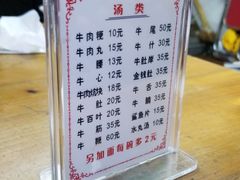 汤类
牛肉梗 10元
牛肉丸 15元
牛腰 13元
牛心 12元
牛肉纺快 18元
牛肚 20元
牛百叶 20元
牛筋 35元
牛鞭 60元
牛尾 50元
牛什 30元
牛肚厚 35元
金钱肚 35元
牛舌 35元
牛腩 35元
鲨鱼片 15元
水丸汤 10元
另加面每碗多2元